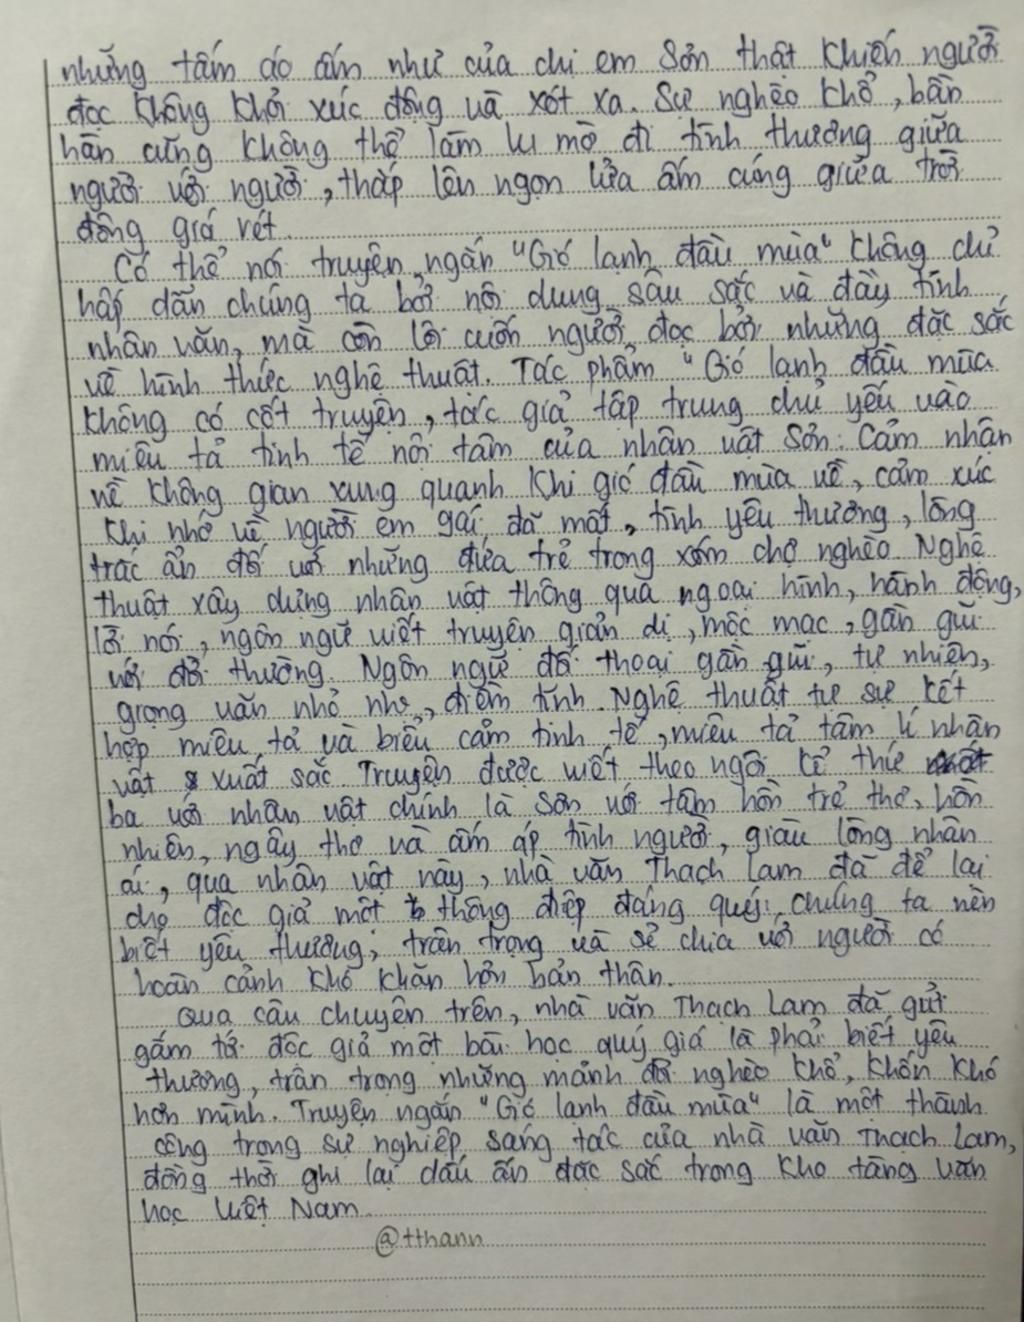 những tấm áo ấm như của chị em Sơn thật khiến người
đọc không khỏi xúc động và xót xa. Sự nghèo khổ, bần
hàn cũng không thể làm lu mờ đi tình thương giữa
người với người, thắp lên ngọn lửa ấm cúng giữa trời
đông giá rét.
Có thể nói truyện ngắn "Gió lạnh đầu mùa" không chỉ
hấp dẫn chúng ta bởi nội dung sâu sắc và đầy tính
nhân văn, mà còn lôi cuốn người đọc bởi những đặc sắc
về hình thức nghệ thuật. Tác phẩm "Gió lạnh đầu mùa
không có cốt truyện, tác giả tập trung chủ yếu vào
miêu tả tinh tế nội tâm của nhân vật Sơn: Cảm nhận
về không gian xung quanh khi gió đầu mùa về, cảm xúc
khi nhớ về người em gái đã mất, tình yêu thương, lòng
trắc ẩn đối với những đứa trẻ trong xóm chợ nghèo. Nghệ
thuật xây dựng nhân vật thông qua ngoại hình, hành động,
lời nói, ngôn ngữ viết truyện giản dị, mộc mạc, gần gũi
với đời thường. Ngôn ngữ đối thoại gần gũi, tự nhiên,
giọng văn nhỏ nhẹ, điềm tĩnh. Nghệ thuật tự sự kết
hợp miêu tả và biểu cảm tinh tế, miêu tả tâm lí nhân
vật xuất sắc. Truyện được viết theo ngôi kể thứ
ba với nhân vật chính là Sơn với tâm hồn trẻ thơ, hồn
nhiên, ngây thơ và ấm áp tình người, giàu lòng nhân
ái, qua nhân vật này, nhà văn Thạch Lam đã để lại
cho độc giả một thông điệp đáng quý: chúng ta nên
biết yêu thương, trân trọng và sẻ chia với người có
hoàn cảnh khó khăn hơn bản thân.
Qua câu chuyện trên, nhà văn Thạch Lam đã gửi
gắm tới độc giả một bài học quý giá là phải biết yêu
thương, trân trọng những mảnh đời nghèo khổ, khốn khó
hơn mình. Truyện ngắn "Gió lạnh đầu mùa" là một thành
công trong sự nghiệp sáng tác của nhà văn Thạch Lam,
đồng thời ghi lại dấu ấn đặc sắc trong kho tàng văn
học Việt Nam.
@tthann